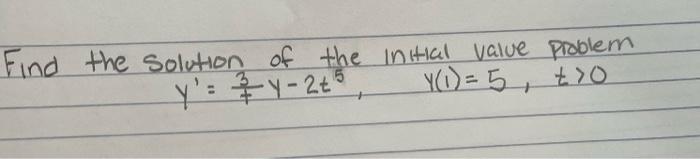 Find the solution of the initial value problem
y' = 3/t y - 2t^5, y(1) = 5, t > 0